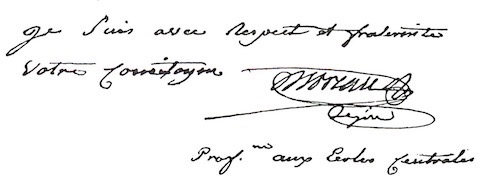 Je Suis avec Respect et fraternité
Votre Concitoyen
Moreau
Prof. aux Ecoles Centrales